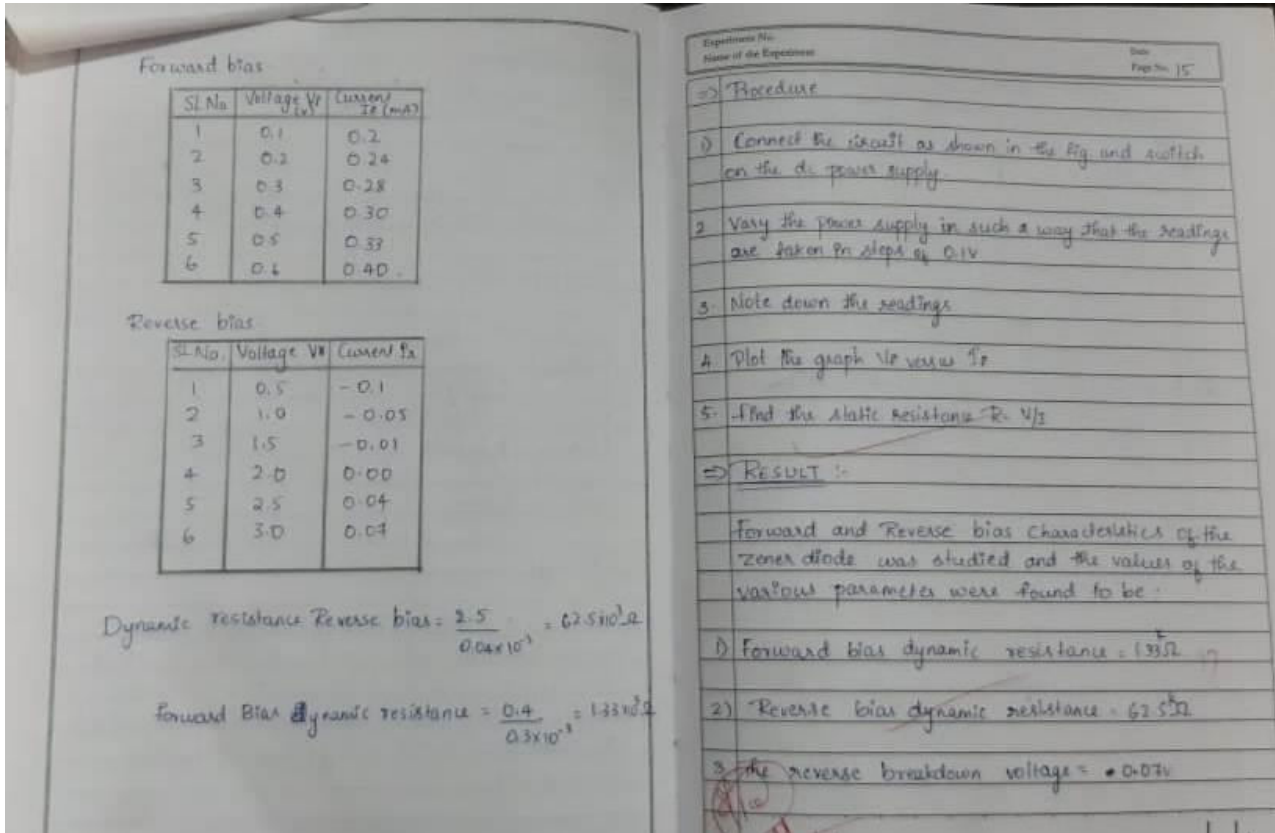 Forward bias
SL No Voltage VF (V) Current IF (mA)
1 0.1 0.2
2 0.2 0.24
3 0.3 0.28
4 0.4 0.30
5 0.5 0.33
6 0.6 0.40
Reverse bias
SL No. Voltage VR Current IR
1 0.5 - 0.1
2 1.0 - 0.05
3 1.5 - 0.01
4 2.0 0.00
5 2.5 0.04
6 3.0 0.07
Dynamic resistance Reverse bias = 2.5 / 0.04 x 10⁻³ = 62.5x10³ Ω
forward Bias dynamic resistance = 0.4 / 0.3x10⁻³ = 1.33x10³ Ω
Experiment No.
Name of the Experiment
Date
Page No. 15
=> Procedure
1) Connect the circuit as shown in the fig and switch
on the dc power supply
2 Vary the power supply in such a way that the readings
are taken in steps of 0.1V
3. Note down the readings
4 Plot the graph VF versus IF
5. find the static resistance R = V/I
=> RESULT :-
Forward and Reverse bias characteristics of the
zener diode was studied and the values of the
various parameter were found to be
1) Forward bias dynamic resistance = 1.33 Ω
2) Reverse bias dynamic resistance = 62.5 Ω
3 The reverse breakdown voltage = 0.07v